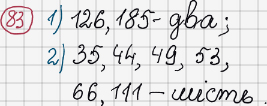 83 1) 126, 185 - два;
2) 35, 44, 49, 53,
66, 111 – шість.